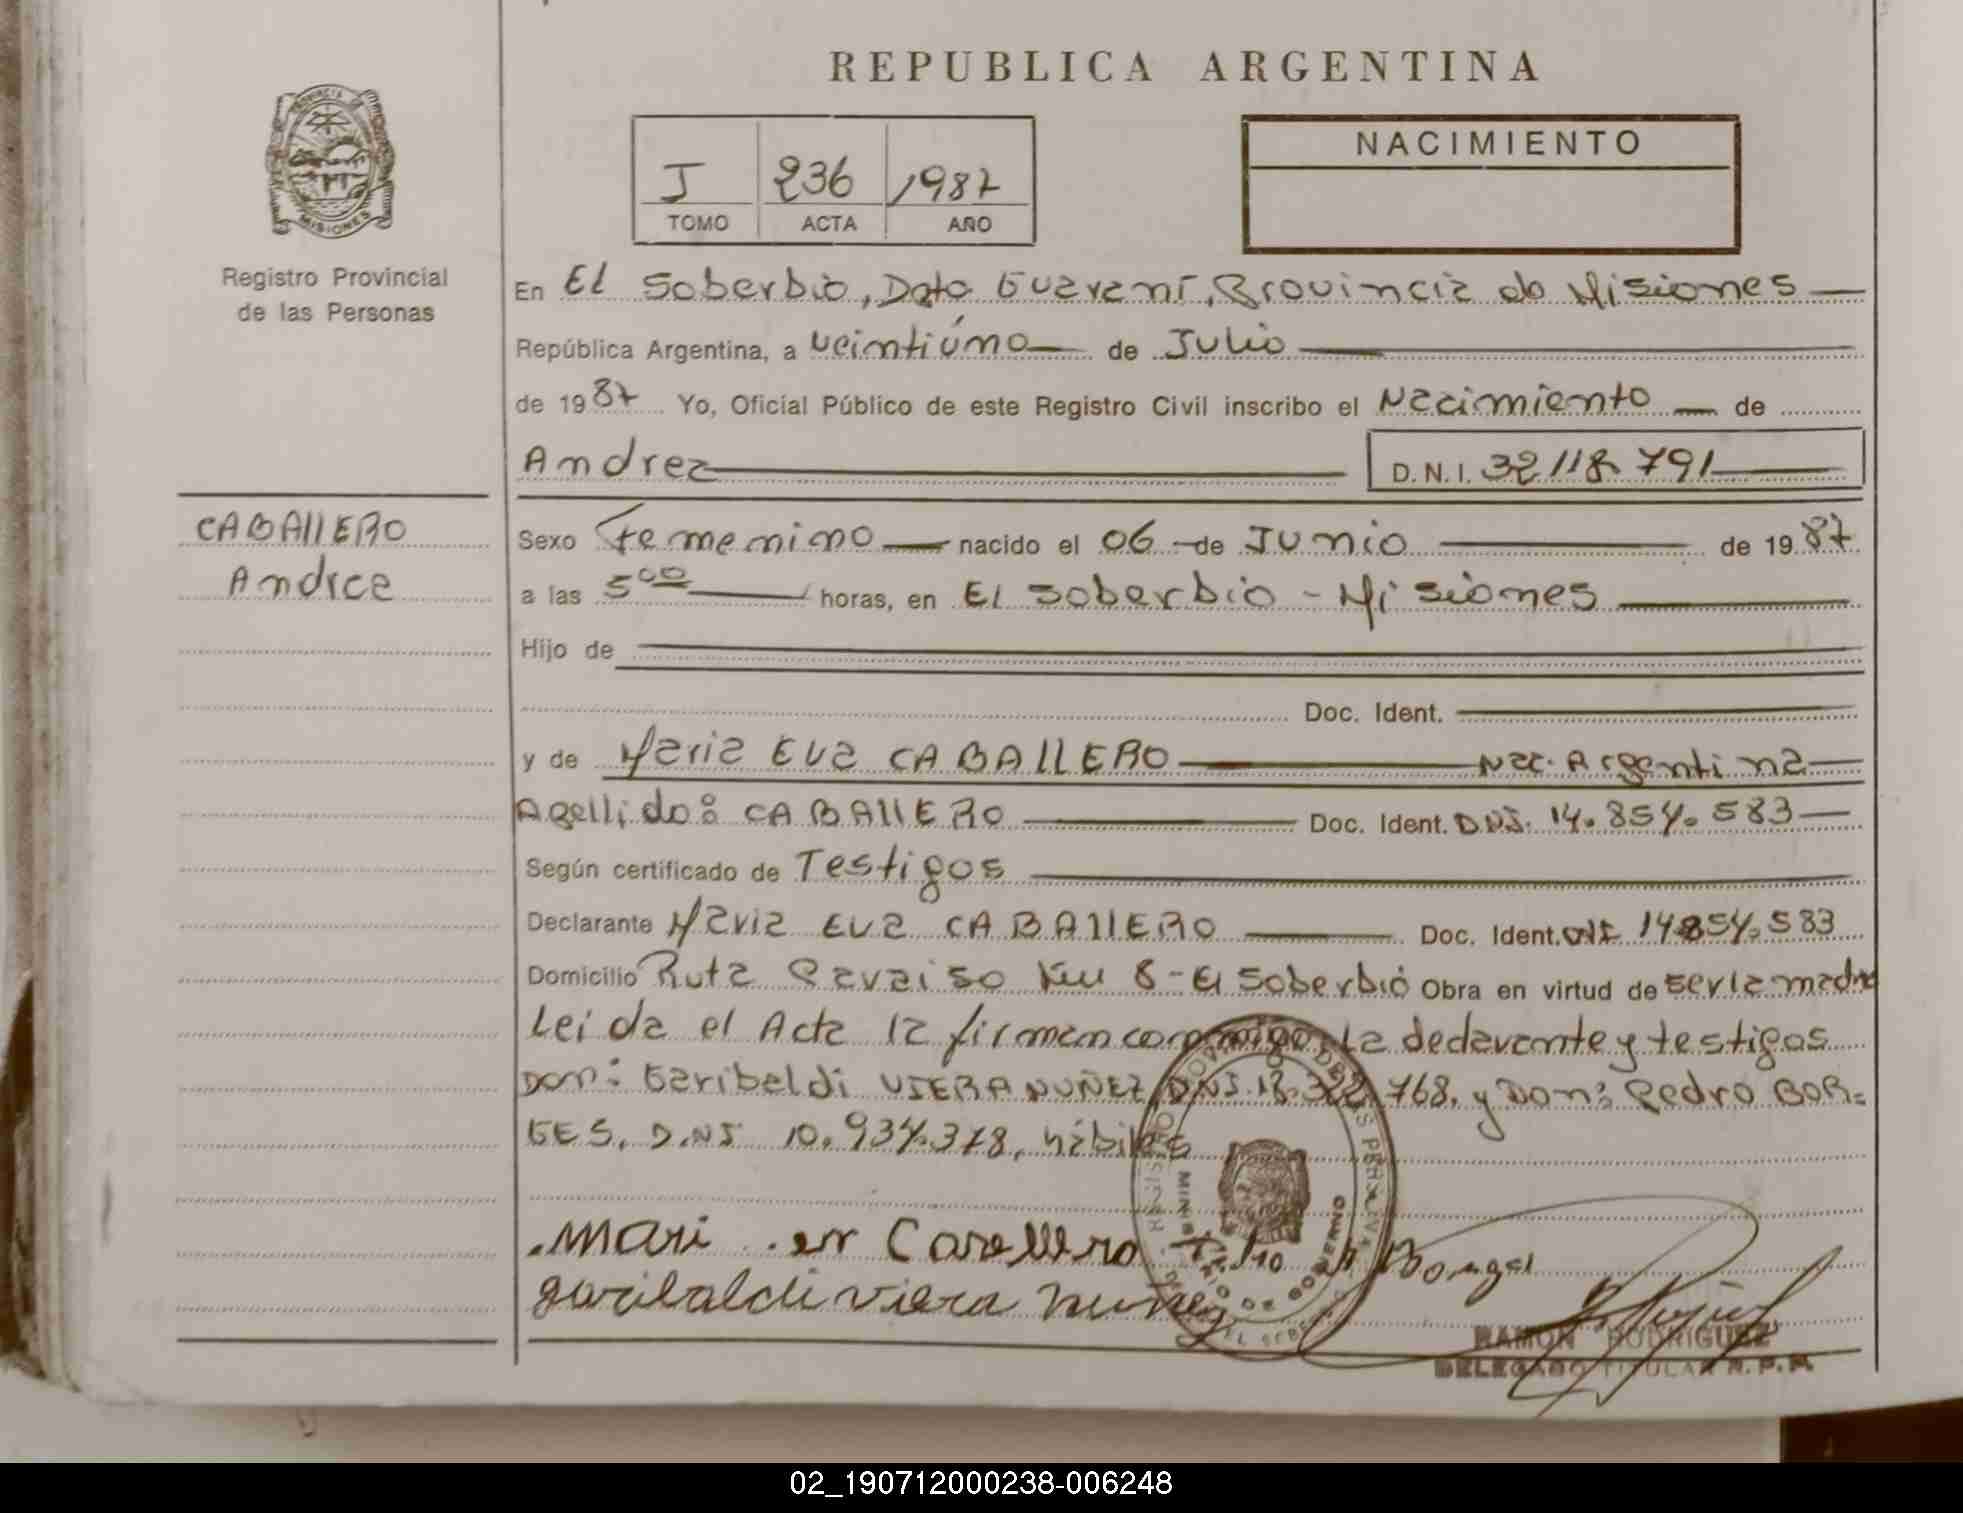 REPUBLICA ARGENTINA
PROVINCIA DE MISIONES
J 236 1987
TOMO ACTA AÑO
NACIMIENTO
Registro Provincial
de las Personas
En El Soberbio, Dpto Guaraní, Provincia de Misiones
República Argentina, a veintiúno de Julio
de 1987 Yo, Oficial Público de este Registro Civil inscribo el Nacimiento de
Andrea D.N.I. 32.118.791
CABAllERO
Andrea
Sexo Femenino nacido el 06 de Junio de 1987
a las 5 00 horas, en El Soberbio - Misiones
Hijo de
Doc. Ident.
y de Maria Eva CABAllERO Nac. Argentina
Apellido: CABAllERO Doc. Ident. DNI. 14.854.583
Según certificado de Testigos
Declarante Maria Eva CABAllERO Doc. Ident. DNI 14.854.583
Domicilio Ruta Paraiso Km 8 - El Soberbio Obra en virtud de ser la madre
Leida el Acta la firman conmigo la declarante y testigos
Don: Garibaldi VIERA NUÑEZ, DNI. 18.322.768, y Don: Pedro BOR=
GES, D.NI 10.934.378, hábiles
Mari er Cavallero
garibaldi viera nuñez
MINISTERIO DE GOBIERNO
RAMON RODRIGUEZ
DELEGADO TITULAR R.P.P.
02_190712000238-006248